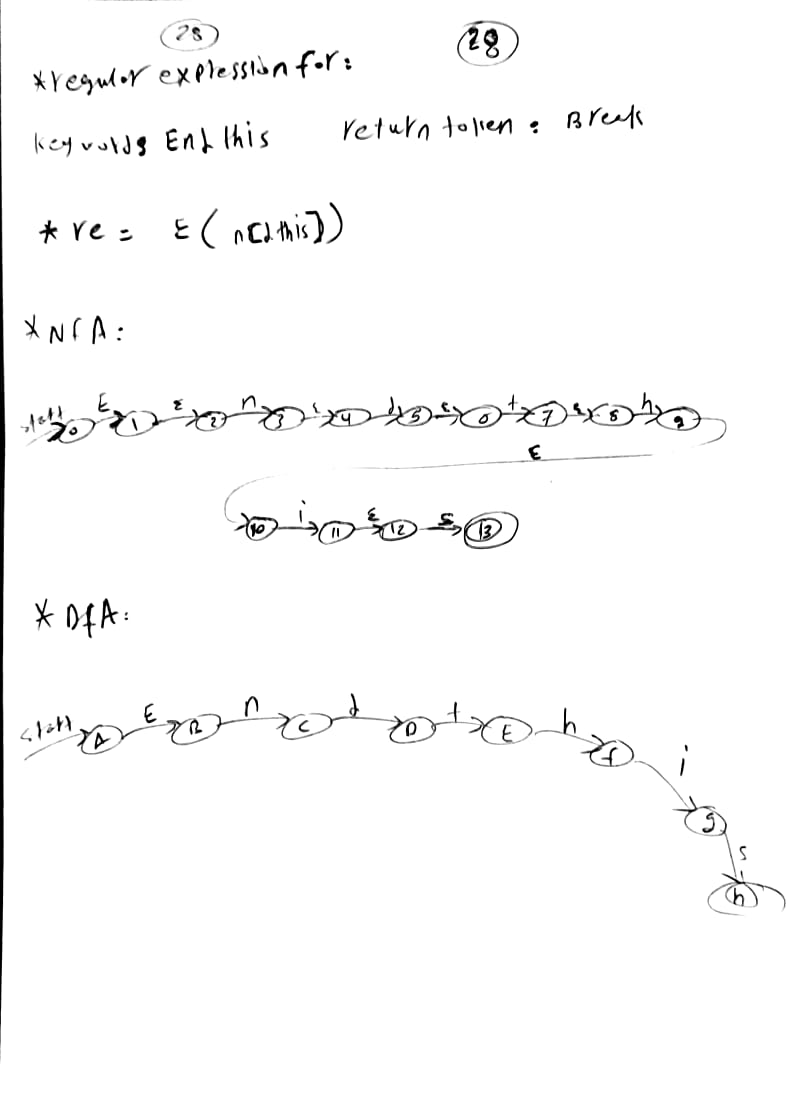 28 28
*regular expression for:
keywords Endthis return token : Break
* re = E(n[dthis])
* NFA:
start 0 E 1 ε 2 n 3 ε 4 d 5 ε 6 t 7 ε 8 h 9
ε
10 i 11 ε 12 s 13
* DfA:
start A E B n C d D t E h f i g s h